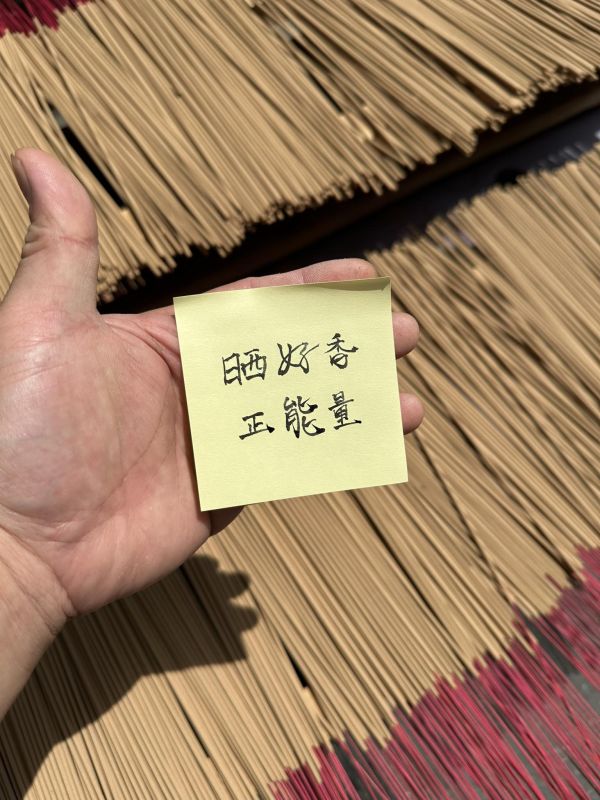 晒好香
正能量